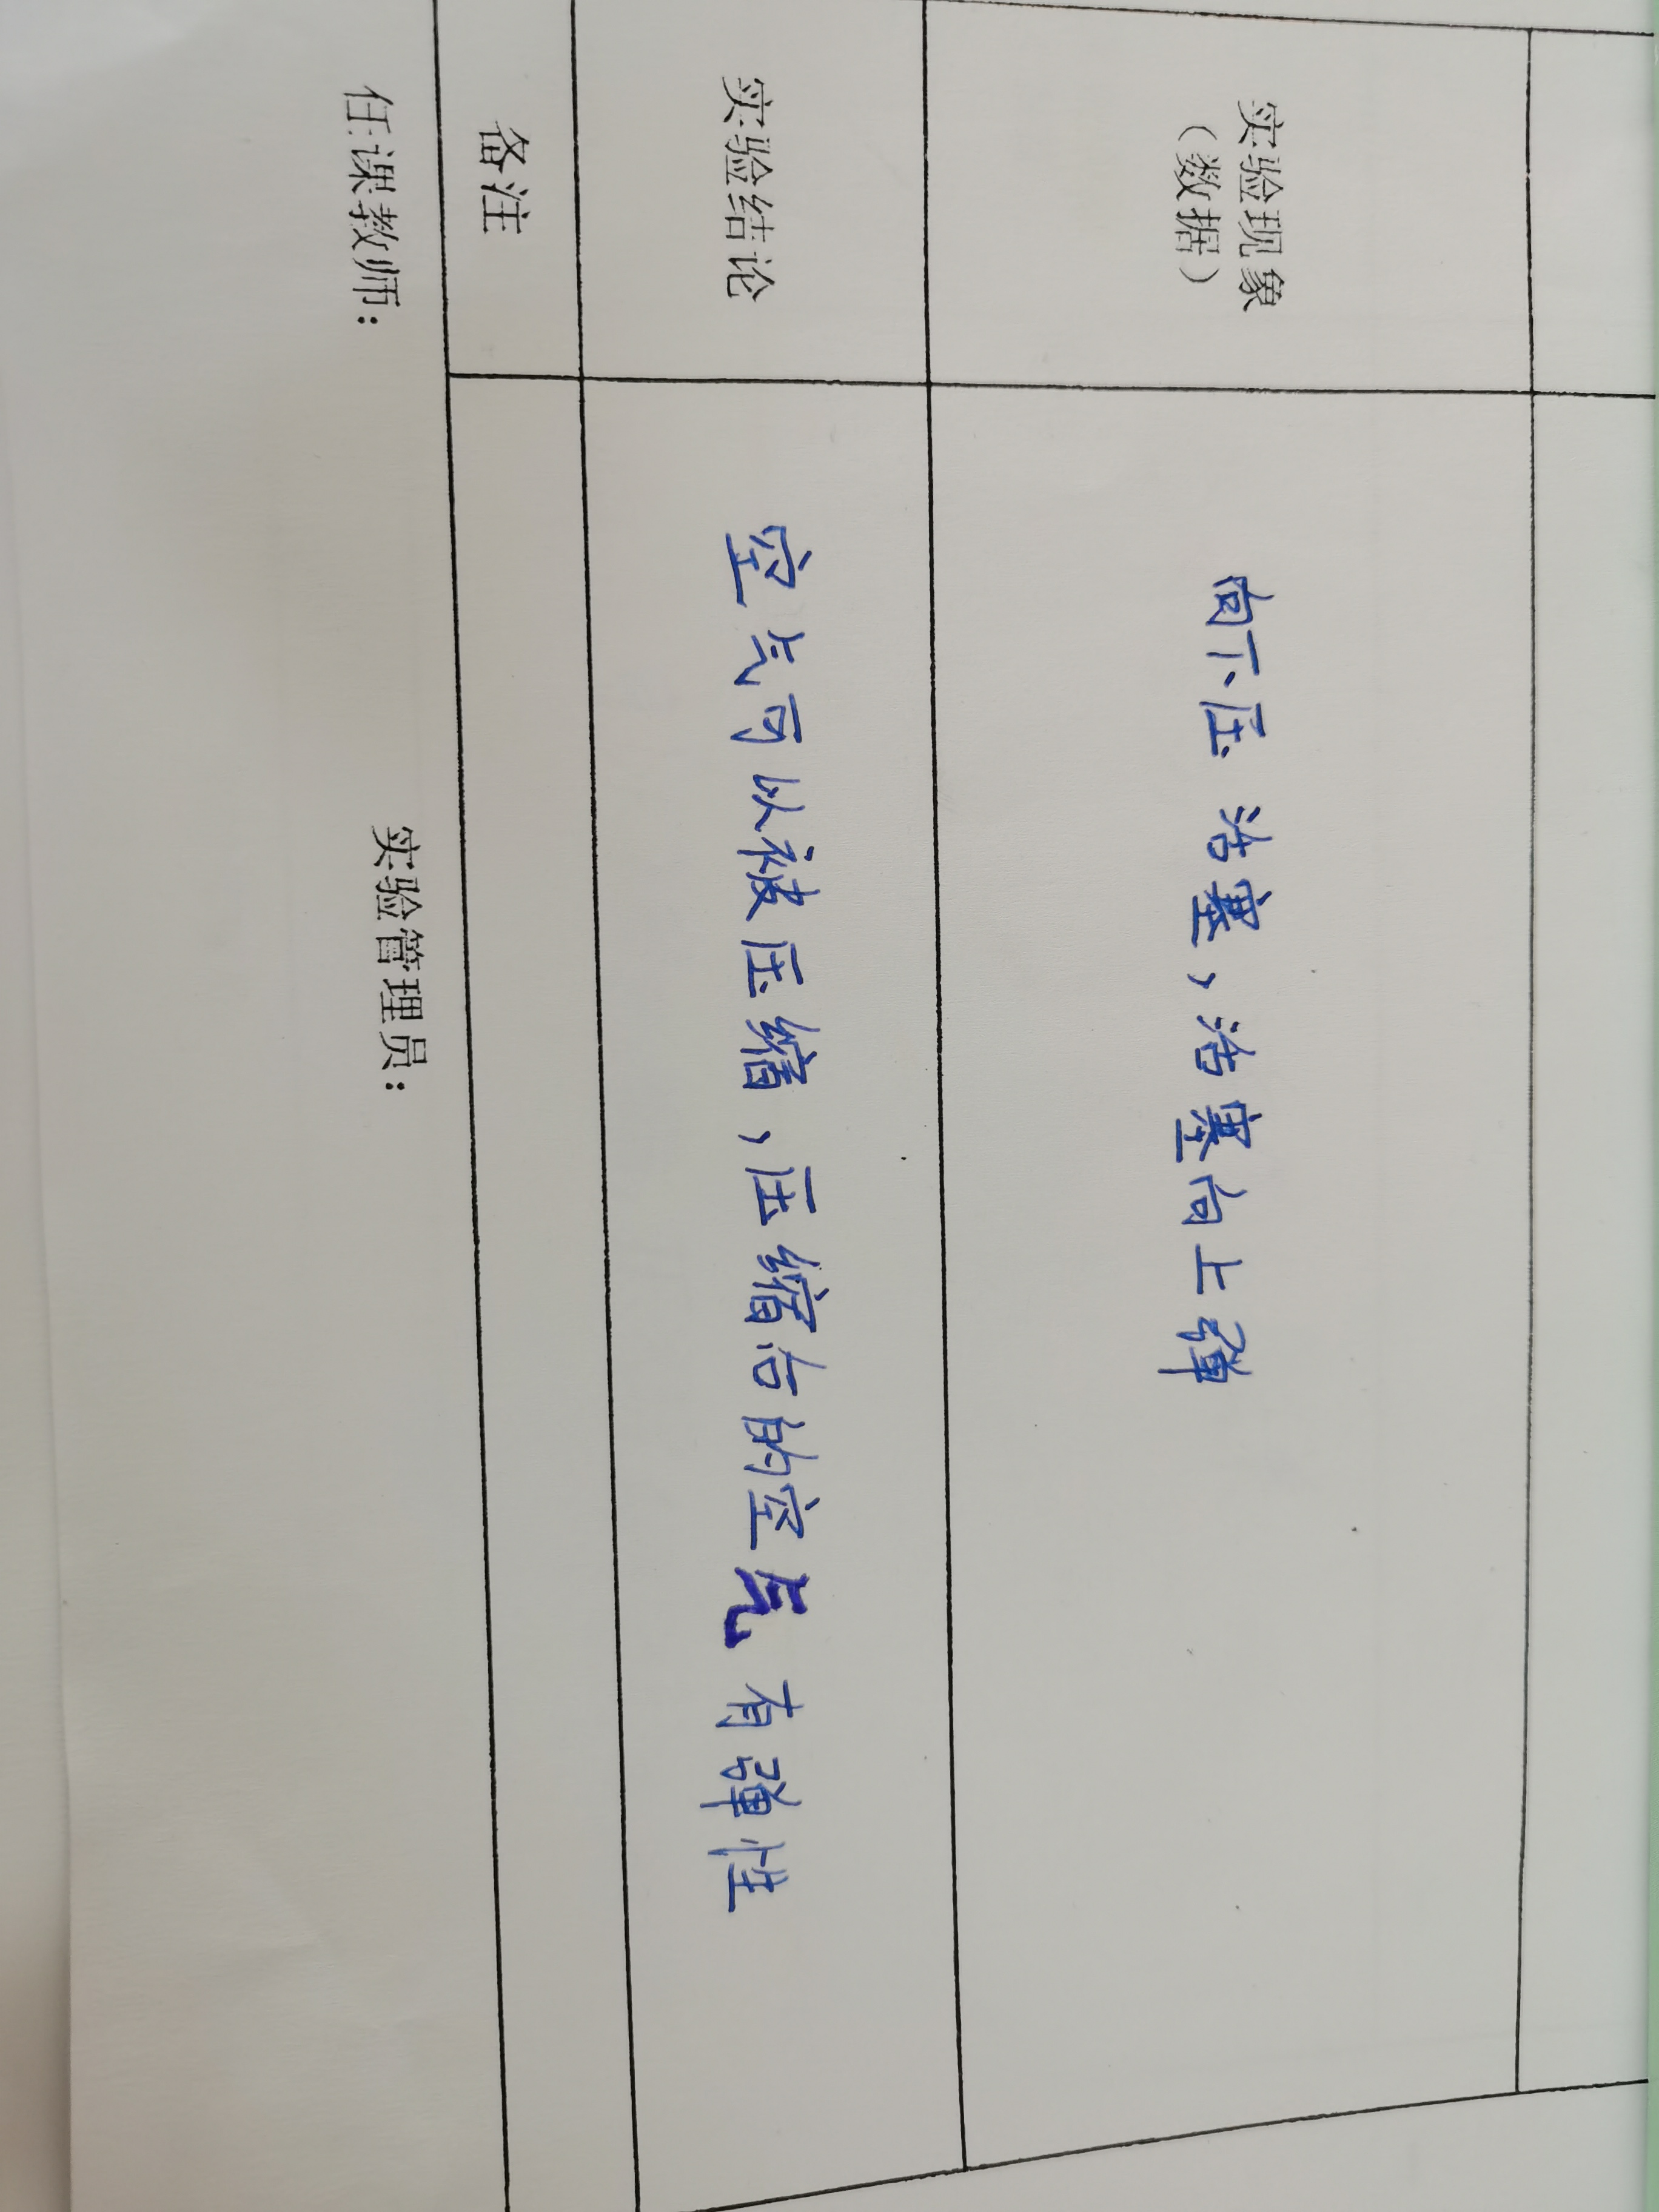 实验现象
（数据）
向下压活塞，活塞向上弹
实验结论
空气可以被压缩，压缩后的空气有弹性
备注
任课教师：
实验管理员：